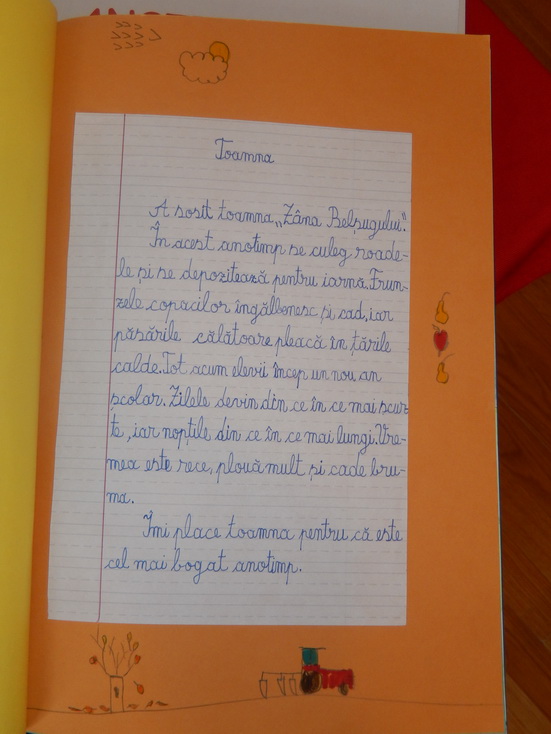 Toamna
A sosit toamna „Zâna Belșugului".
În acest anotimp se culeg roade-
le și se depozitează pentru iarnă. Frun-
zele copacilor îngălbenesc și cad, iar
păsările călătoare pleacă în țările
calde. Tot acum elevii încep un nou an
școlar. Zilele devin din ce în ce mai scur
te, iar nopțile din ce în ce mai lungi. Vre-
mea este rece, plouă mult și cade bru-
ma.
Îmi place toamna pentru că este
cel mai bogat anotimp.